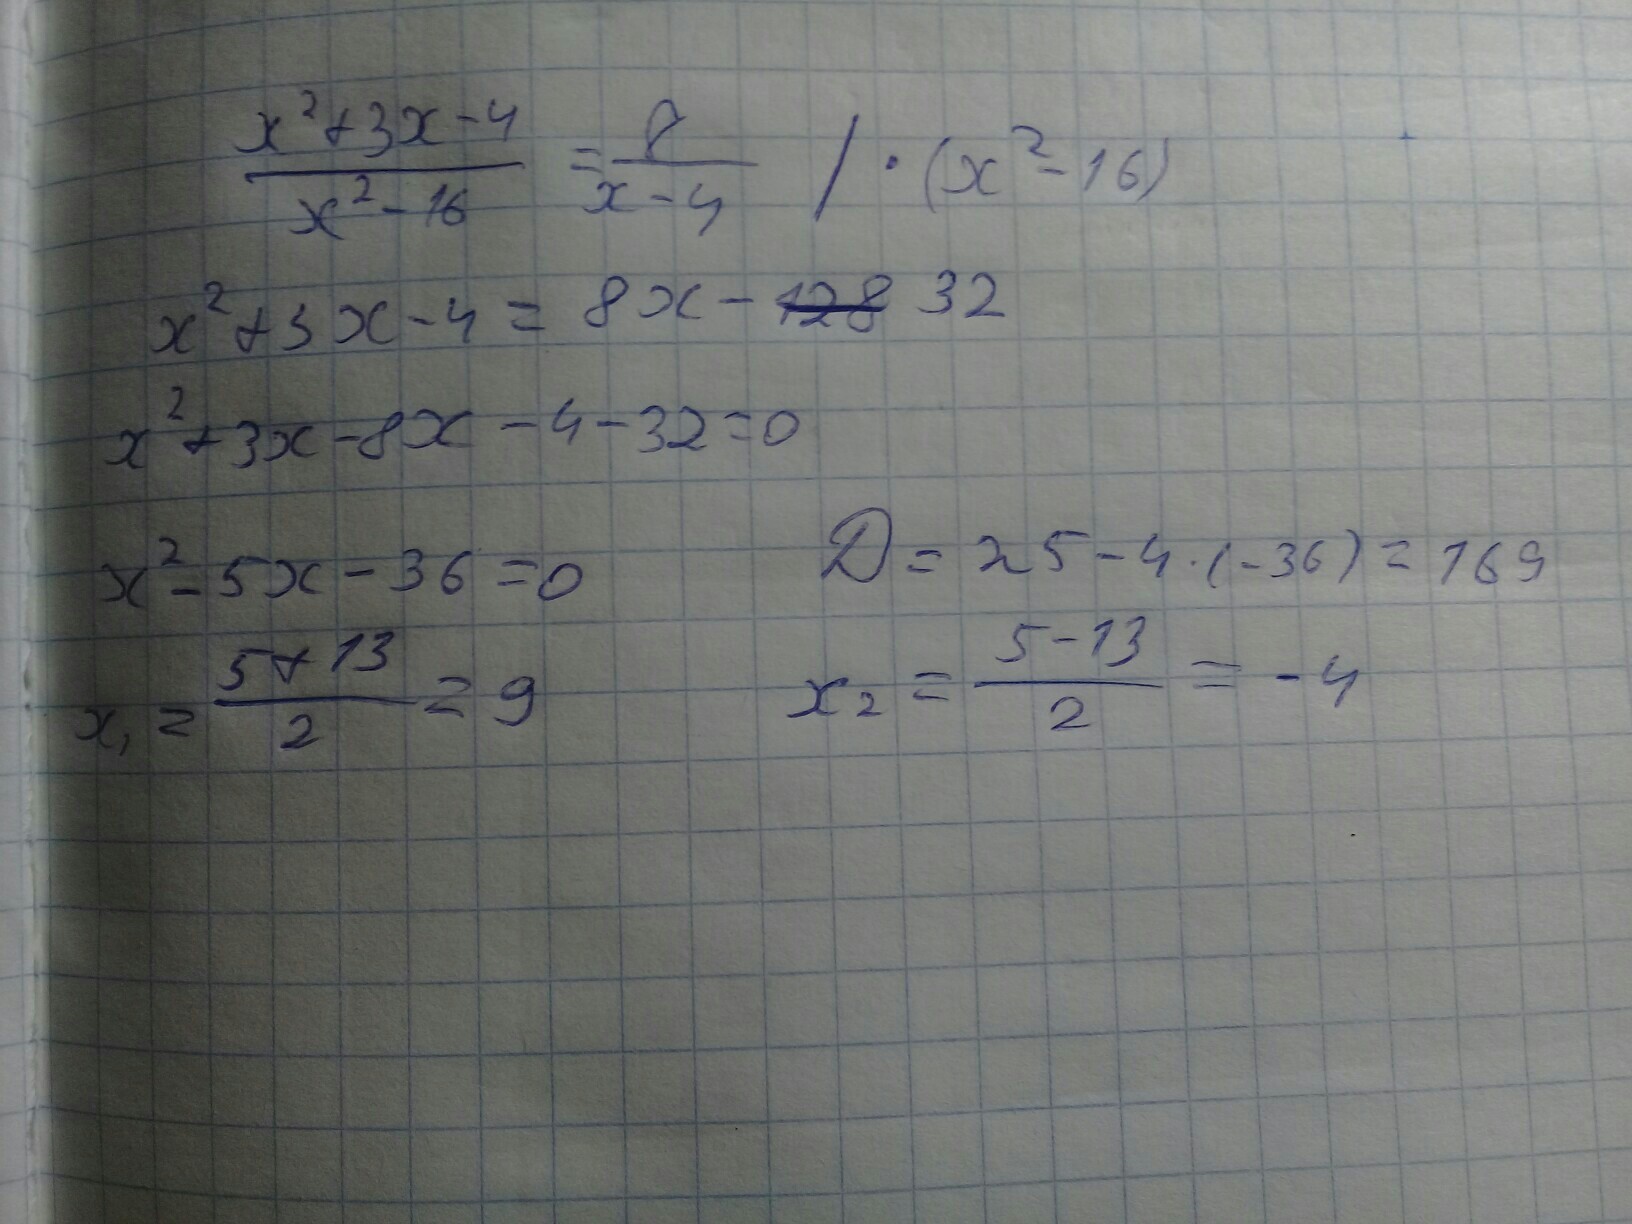 x²+3x-4 / x²-16 = 8 / x-4 / · (x²-16)
x²+3x-4 = 8x - 128 32
x²+3x-8x-4-32=0
x²-5x-36=0 D=25-4·(-36)=169
x₁ = 5+13 / 2 = 9 x₂ = 5-13 / 2 = -4